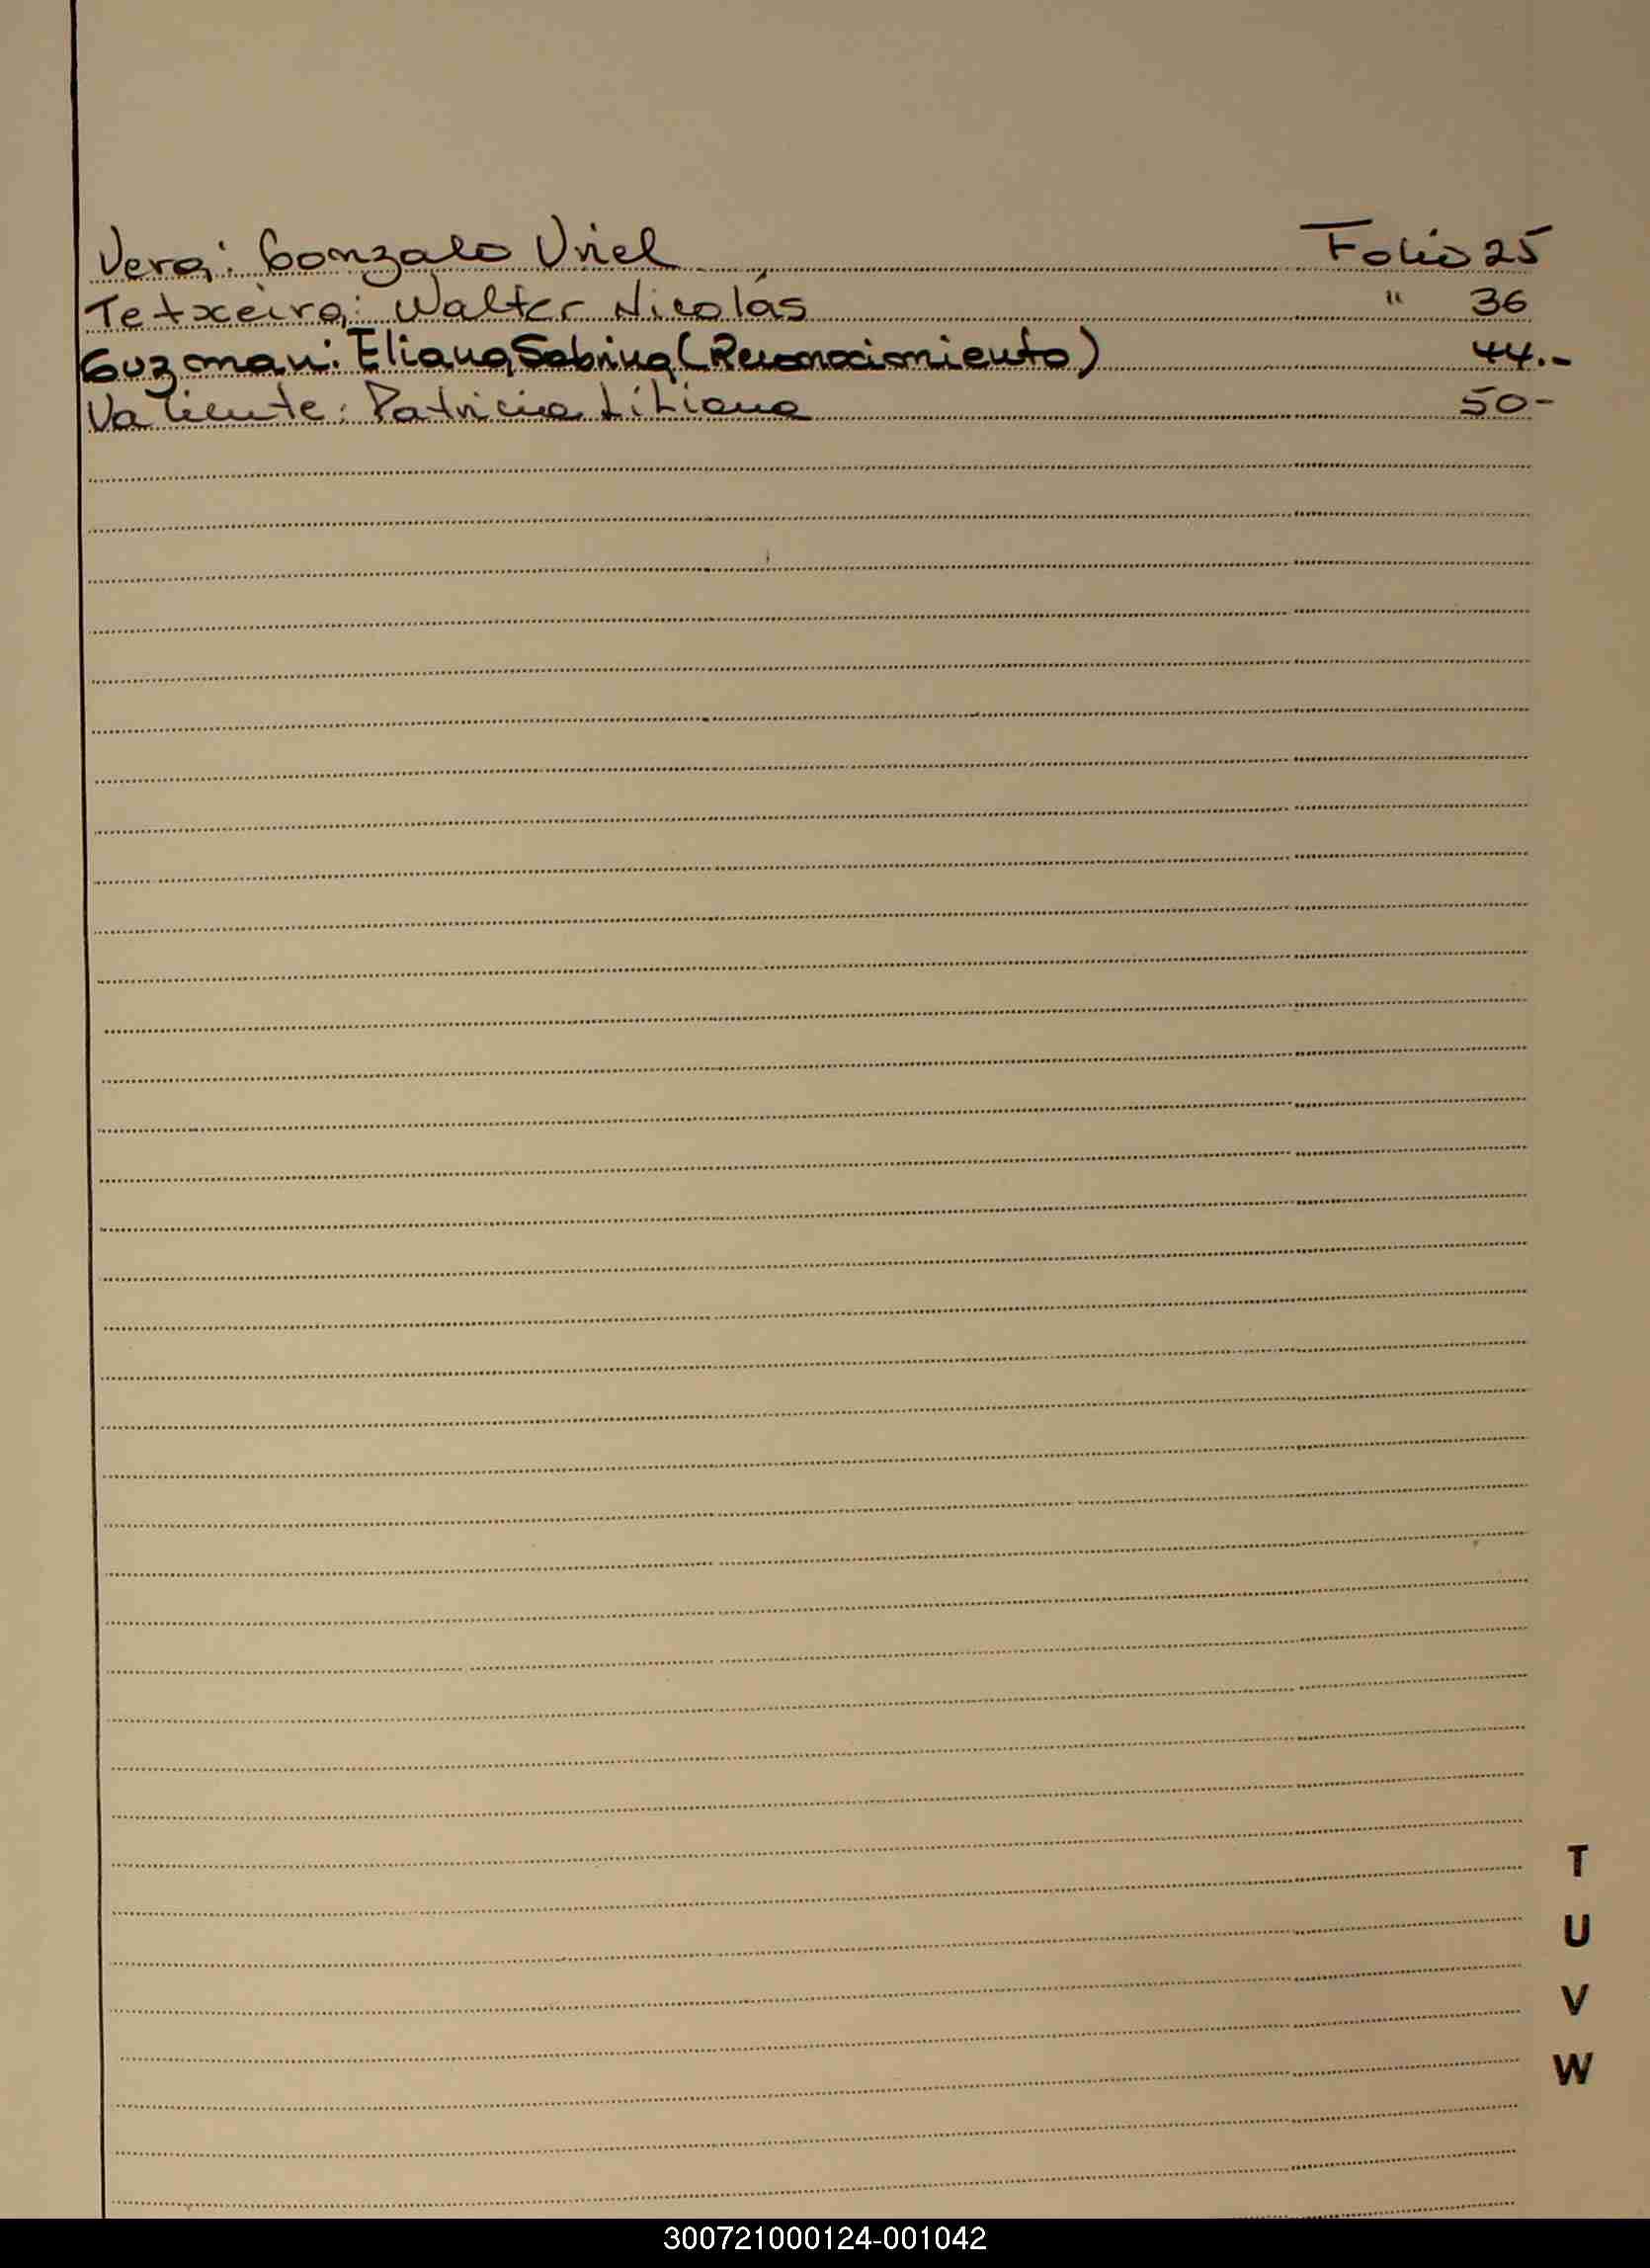 Vera: Gonzalo Uriel Folio 25
Tetxeira: Walter Nicolás " 36
Guzman: Eliana Sabrina (Reconocimiento) 44.-
Valiente: Patricia Liliana 50-
T
U
V
W
300721000124-001042